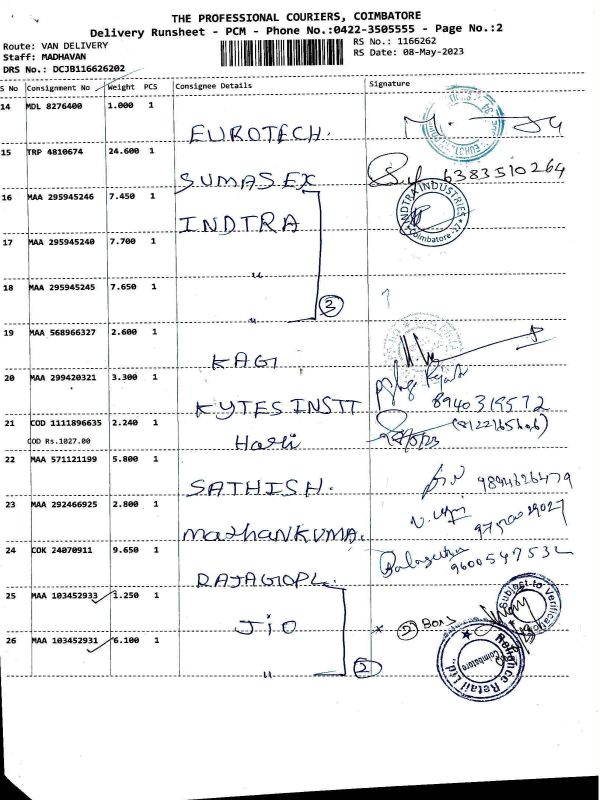 THE PROFESSIONAL COURIERS, COIMBATORE
Delivery Runsheet - PCM - Phone No.:0422-3505555 - Page No.:2
Route: VAN DELIVERY RS No.: 1166262
Staff: MADHAVAN RS Date: 08-May-2023
DRS No.: DCJB116626202
S No Consignment No Weight PCS Consignee Details Signature
14 MDL 8276400 1.000 1 EUROTECH.
15 TRP 4810674 24.600 1 SUMASEX 6383510264
16 MAA 295945246 7.450 1 INDTRA INDTRA INDUSTRIES Coimbatore
17 MAA 295945240 7.700 1 "
18 MAA 295945245 7.650 1 " 3
19 MAA 568966327 2.600 1 KAGI
20 MAA 299420321 3.300 1 KYTES INSTT 8940319572
21 COD 1111896635 2.240 1 Hari
COD Rs.1027.00
22 MAA 571121199 5.800 1 SATHISH. 9894626479
23 MAA 292466925 2.800 1 MathanKUMA.
24 COK 24070911 9.650 1 RAJAGOPL. 9600547532
25 MAA 103452933 1.250 1 Jio 2 Box Subject to Verification
26 MAA 103452931 6.100 1 " 2 Reliance Retail Ltd. Coimbatore